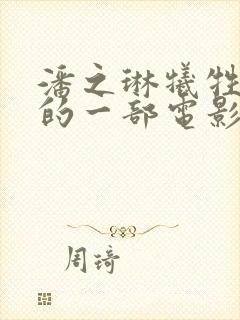 潘之琳犧牲
的一部電影
周琦